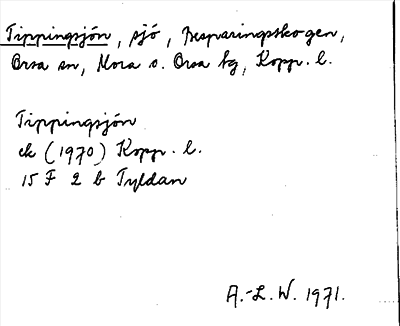 Tippingsjön, sjö, Besparingsskogen,
Orsa sn, Mora o. Orsa tg, Kopp. l.
Tippingsjön
ek (1970) Kopp. l.
15 F 2 b Tyldan
A.-L. W. 1971.